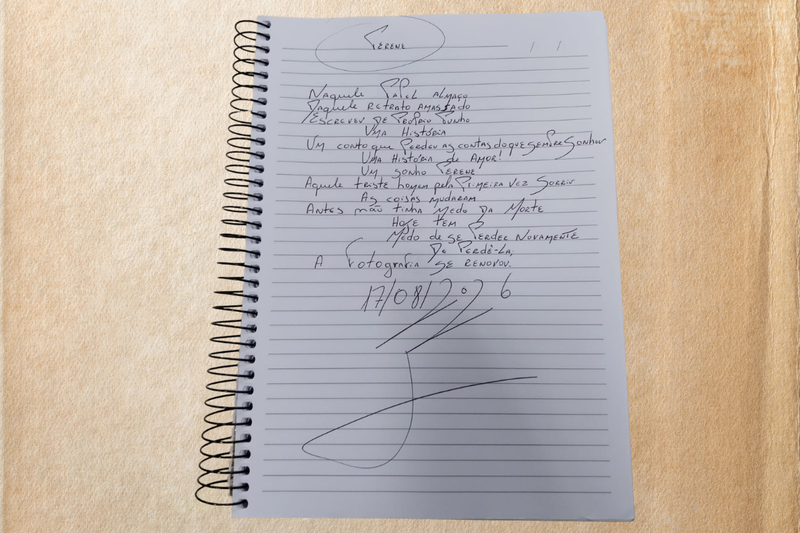 Perene
/ /
Naquele Papel almaço
Daquele retrato amassado
Escreveu de Próprio Punho
Uma História
Um conto que Perdeu as contas do que sempre Sonhou
Uma História de Amor!
Um sonho Perene
Aquele triste homem pela Primeira vez Sorriu
As coisas mudaram
Antes não tinha Medo da Morte
Hoje tem
Medo de se Perder Novamente
De Perdê-la,
A Fotografia se renovou.
17/08/